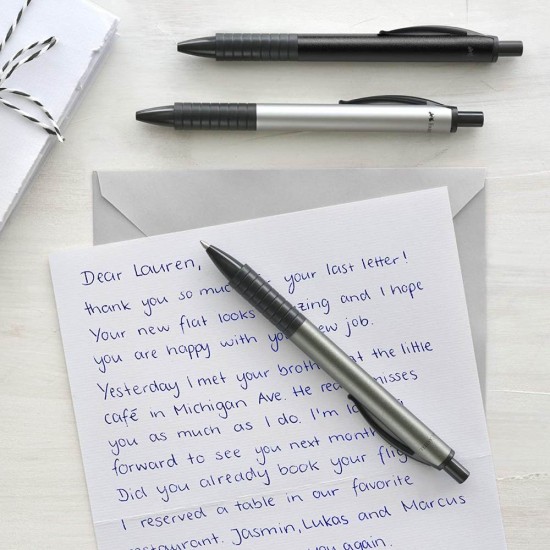 Dear Lauren,
thank you so much your last letter!
Your new flat looks zing and I hope
you are happy with you new job.
Yesterday I met your broth at the little
café in Michigan Ave. He rea misses
you as much as I do. I'm lo
forward to see you next month
Did you already book your flig
I reserved a table in our favorite
restaurant. Jasmin, Lukas and Marcus
you again.